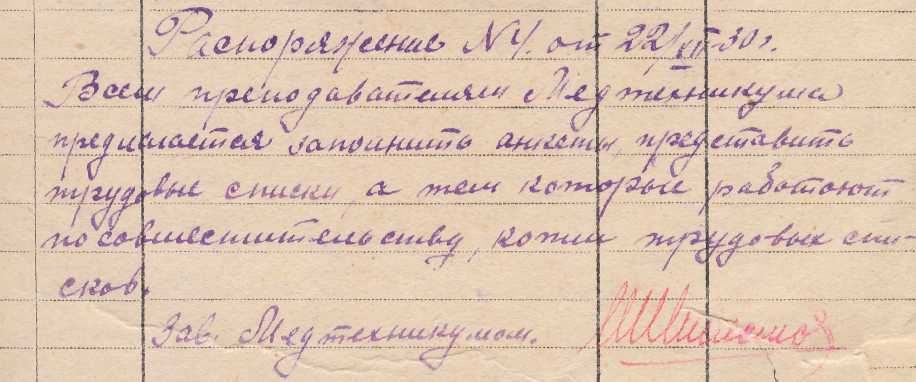 Распоряжение N 4. от 22/XII-30 г.
Всем преподавателям Медтехникума
предлагается заполнить анкеты, представить
трудовые списки, а тем которые работают
по совместительству, копии трудовых спи-
сков.
Зав. Медтехникумом.